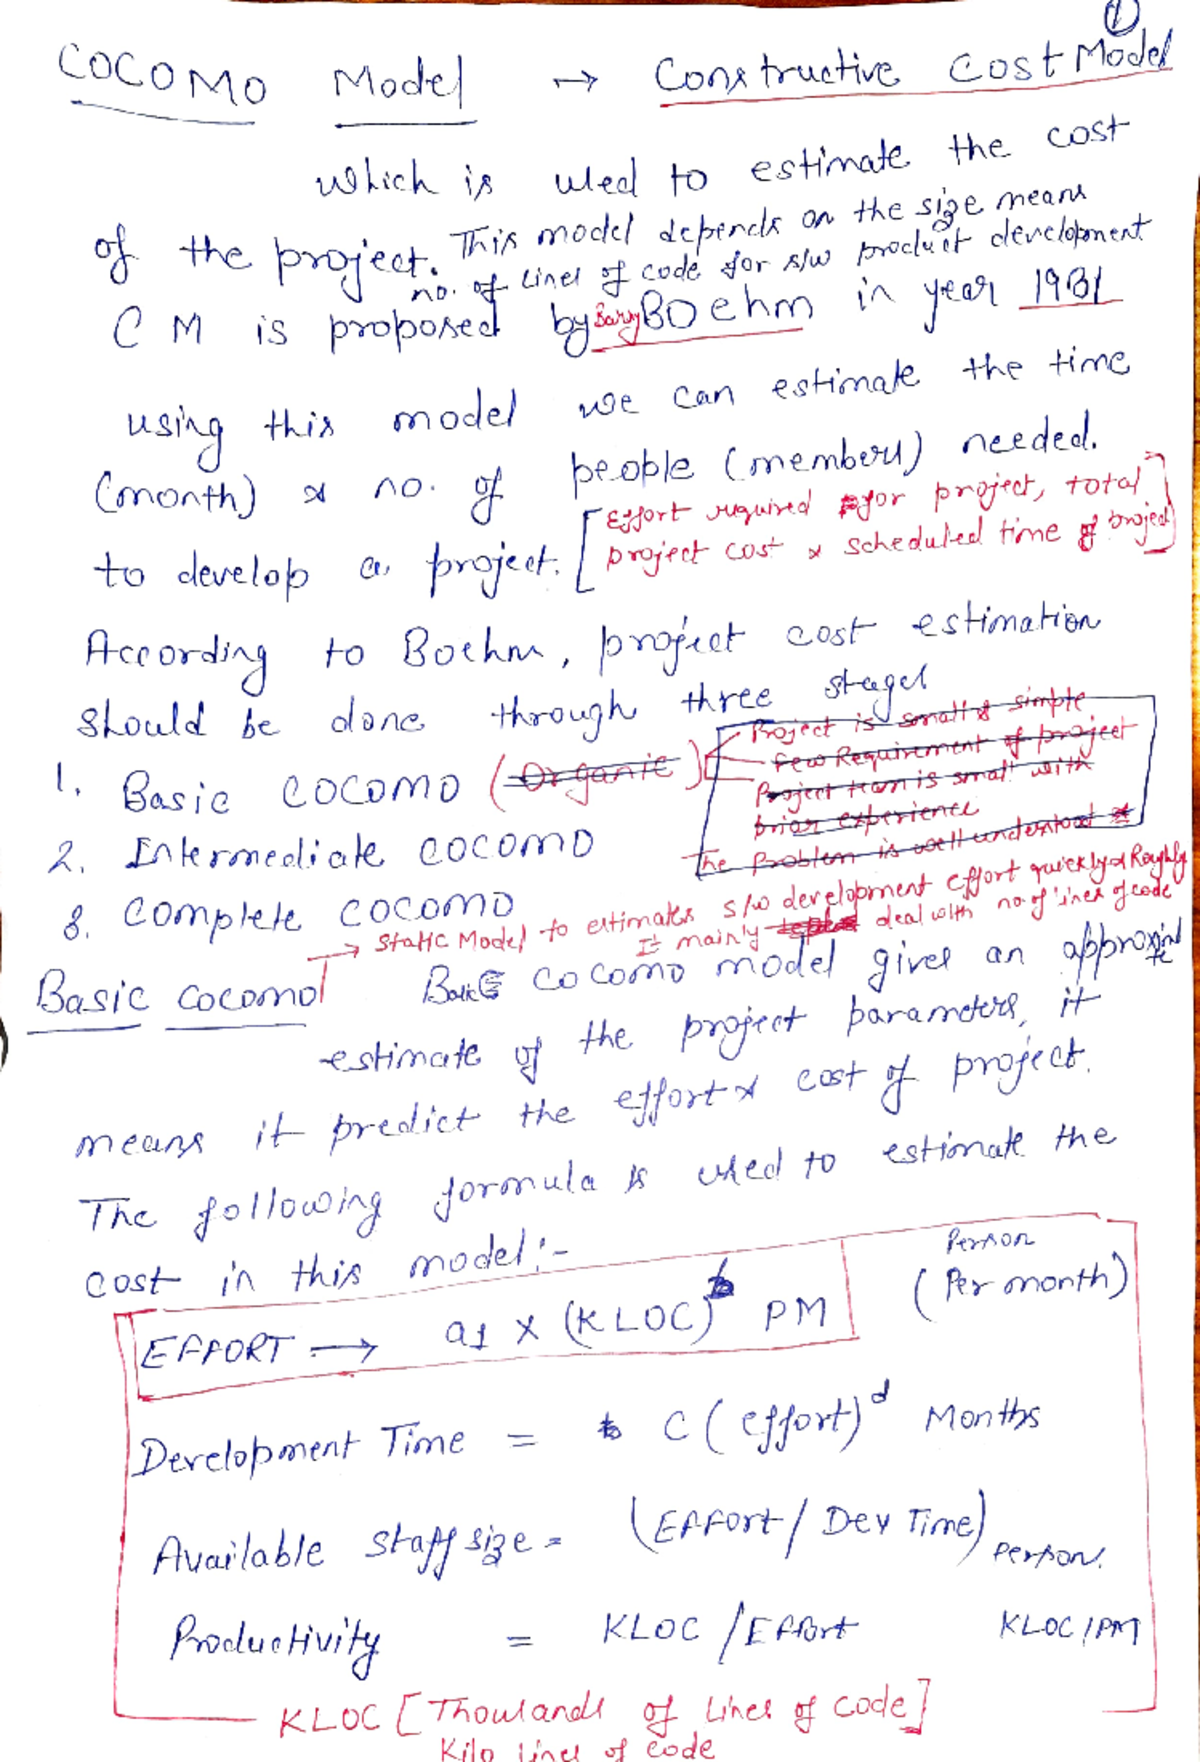 ①
COCOMO Model → Constructive Cost Model
which is used to estimate the cost
of the project. This model depends on the size means
no. of Lines of code for s/w product development
C M is proposed by Barry BOehm in year 1981
using this model we can estimate the time
(month) & no. of people (members) needed.
to develop a project. [Effort required for project, total
project cost & scheduled time of project]
According to Boehm, project cost estimation
should be done through three stages
1. Basic COCOMO (Organic)
Project is small & simple
Few Requirement of project
Project team is small with
prior experience
The Problem is well understood
2. Intermediate COCOMO
3. Complete COCOMO
→ Static Model to estimates s/w development effort quickly & Roughly
It mainly deal with no. of lines of code
Basic COCOMO Basic COCOMO model gives an approximate
estimate of the project parameters, it
means it predict the effort & cost of project.
The following formula is used to estimate the
cost in this model:-
EFFORT → a1 × (KLOC)^b PM (Person Per month)
Development Time = C (effort)^d Months
Available staff size = (EFFort / Dev Time) person.
Productivity = KLOC / EFFort KLOC/PM
KLOC [Thousands of Lines of code]
Kilo Lines of code